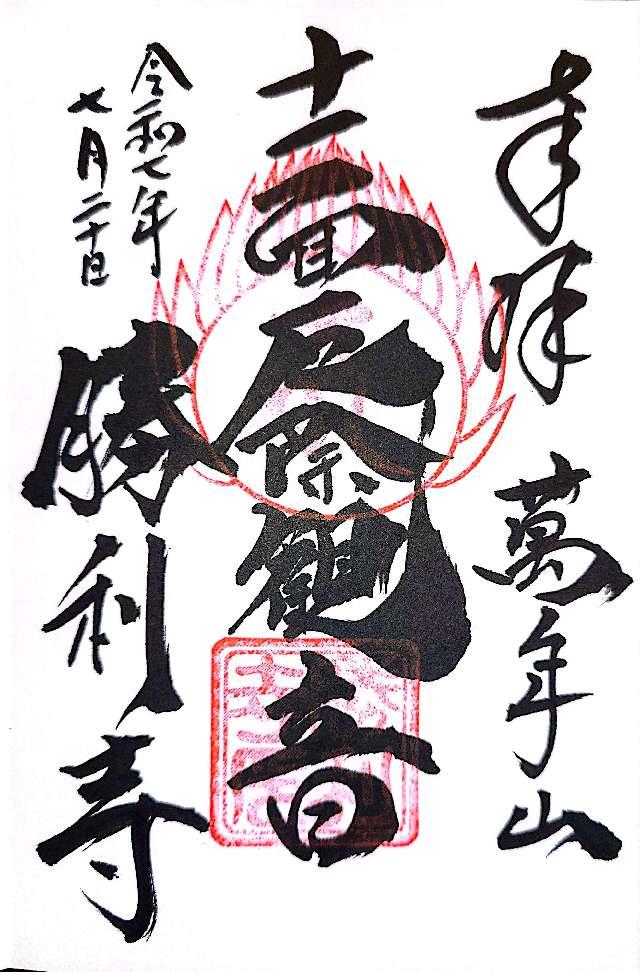 奉拝 萬年山
十一面厄除觀音
勝利寺
令和七年
七月二十日